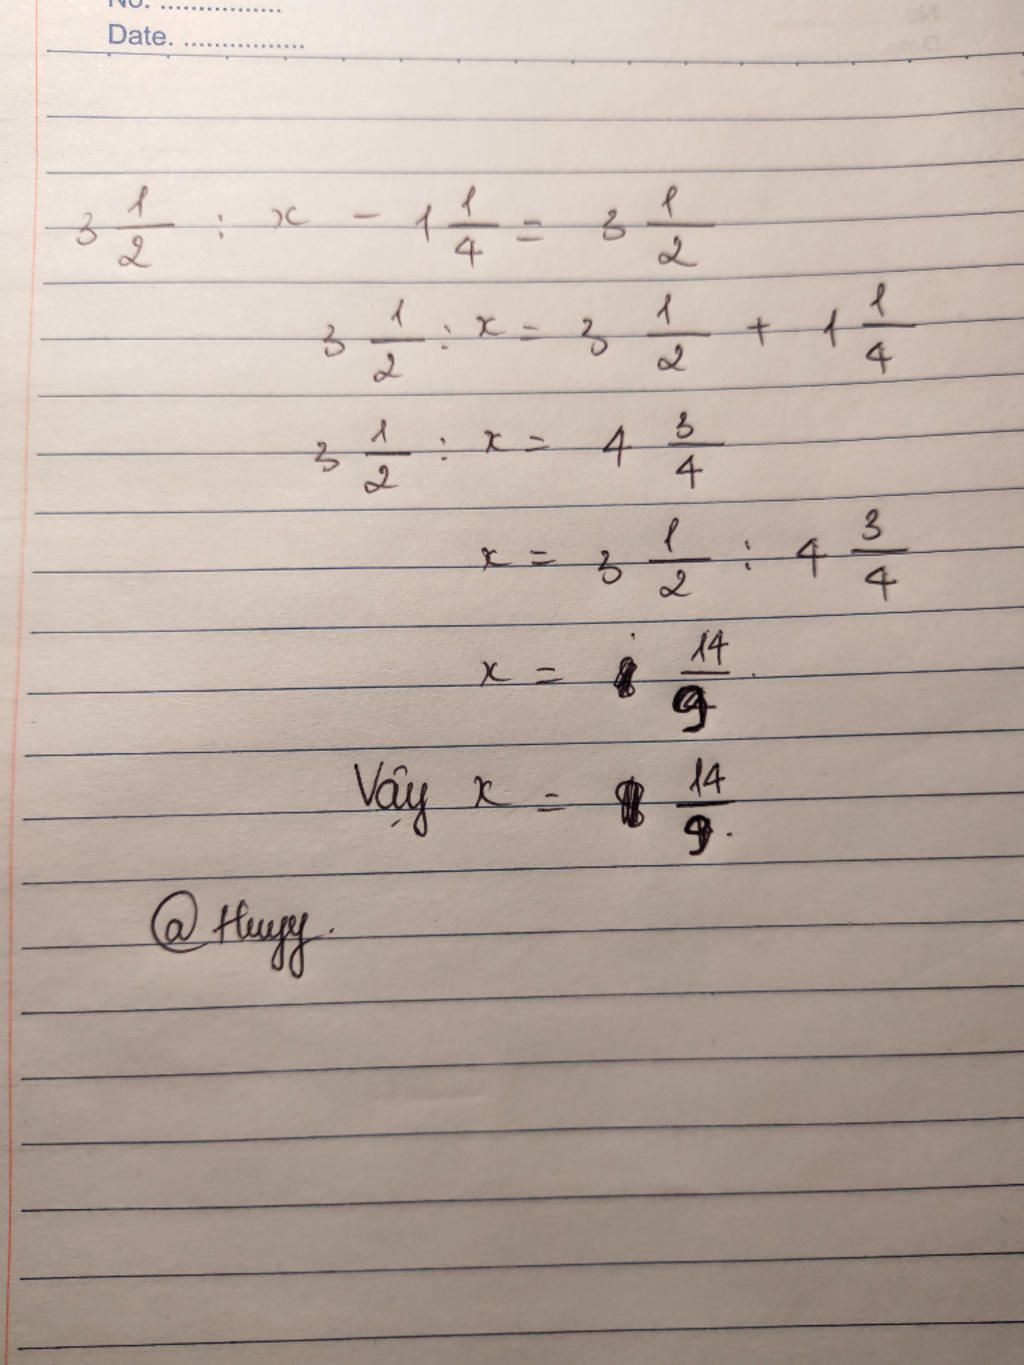 No. ................
Date. ................
3 1/2 : x - 1 1/4 = 3 1/2
3 1/2 : x = 3 1/2 + 1 1/4
3 1/2 : x = 4 3/4
x = 3 1/2 : 4 3/4
x = 14/9.
Vậy x = 14/9.
@Huyy.